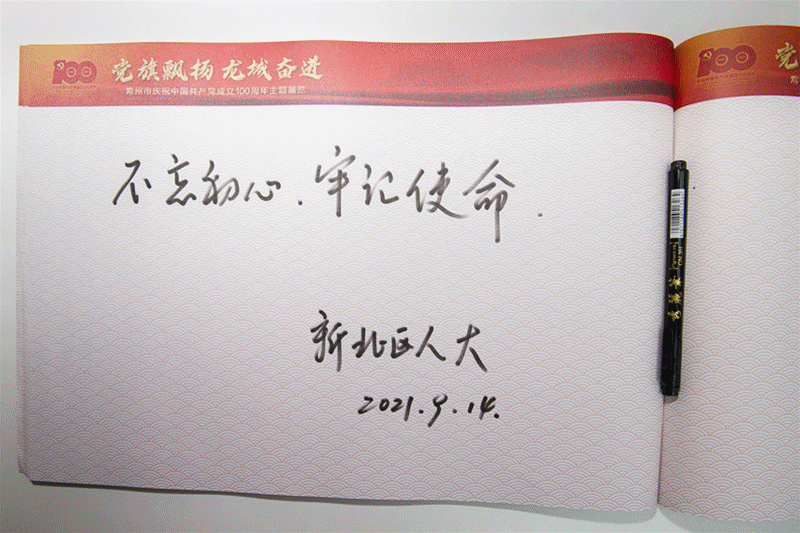 100 党旗飘扬 龙城奋进
常州市庆祝中国共产党成立100周年主题展览
不忘初心、牢记使命.
新北区人大
2021.9.14.
100 党
常州